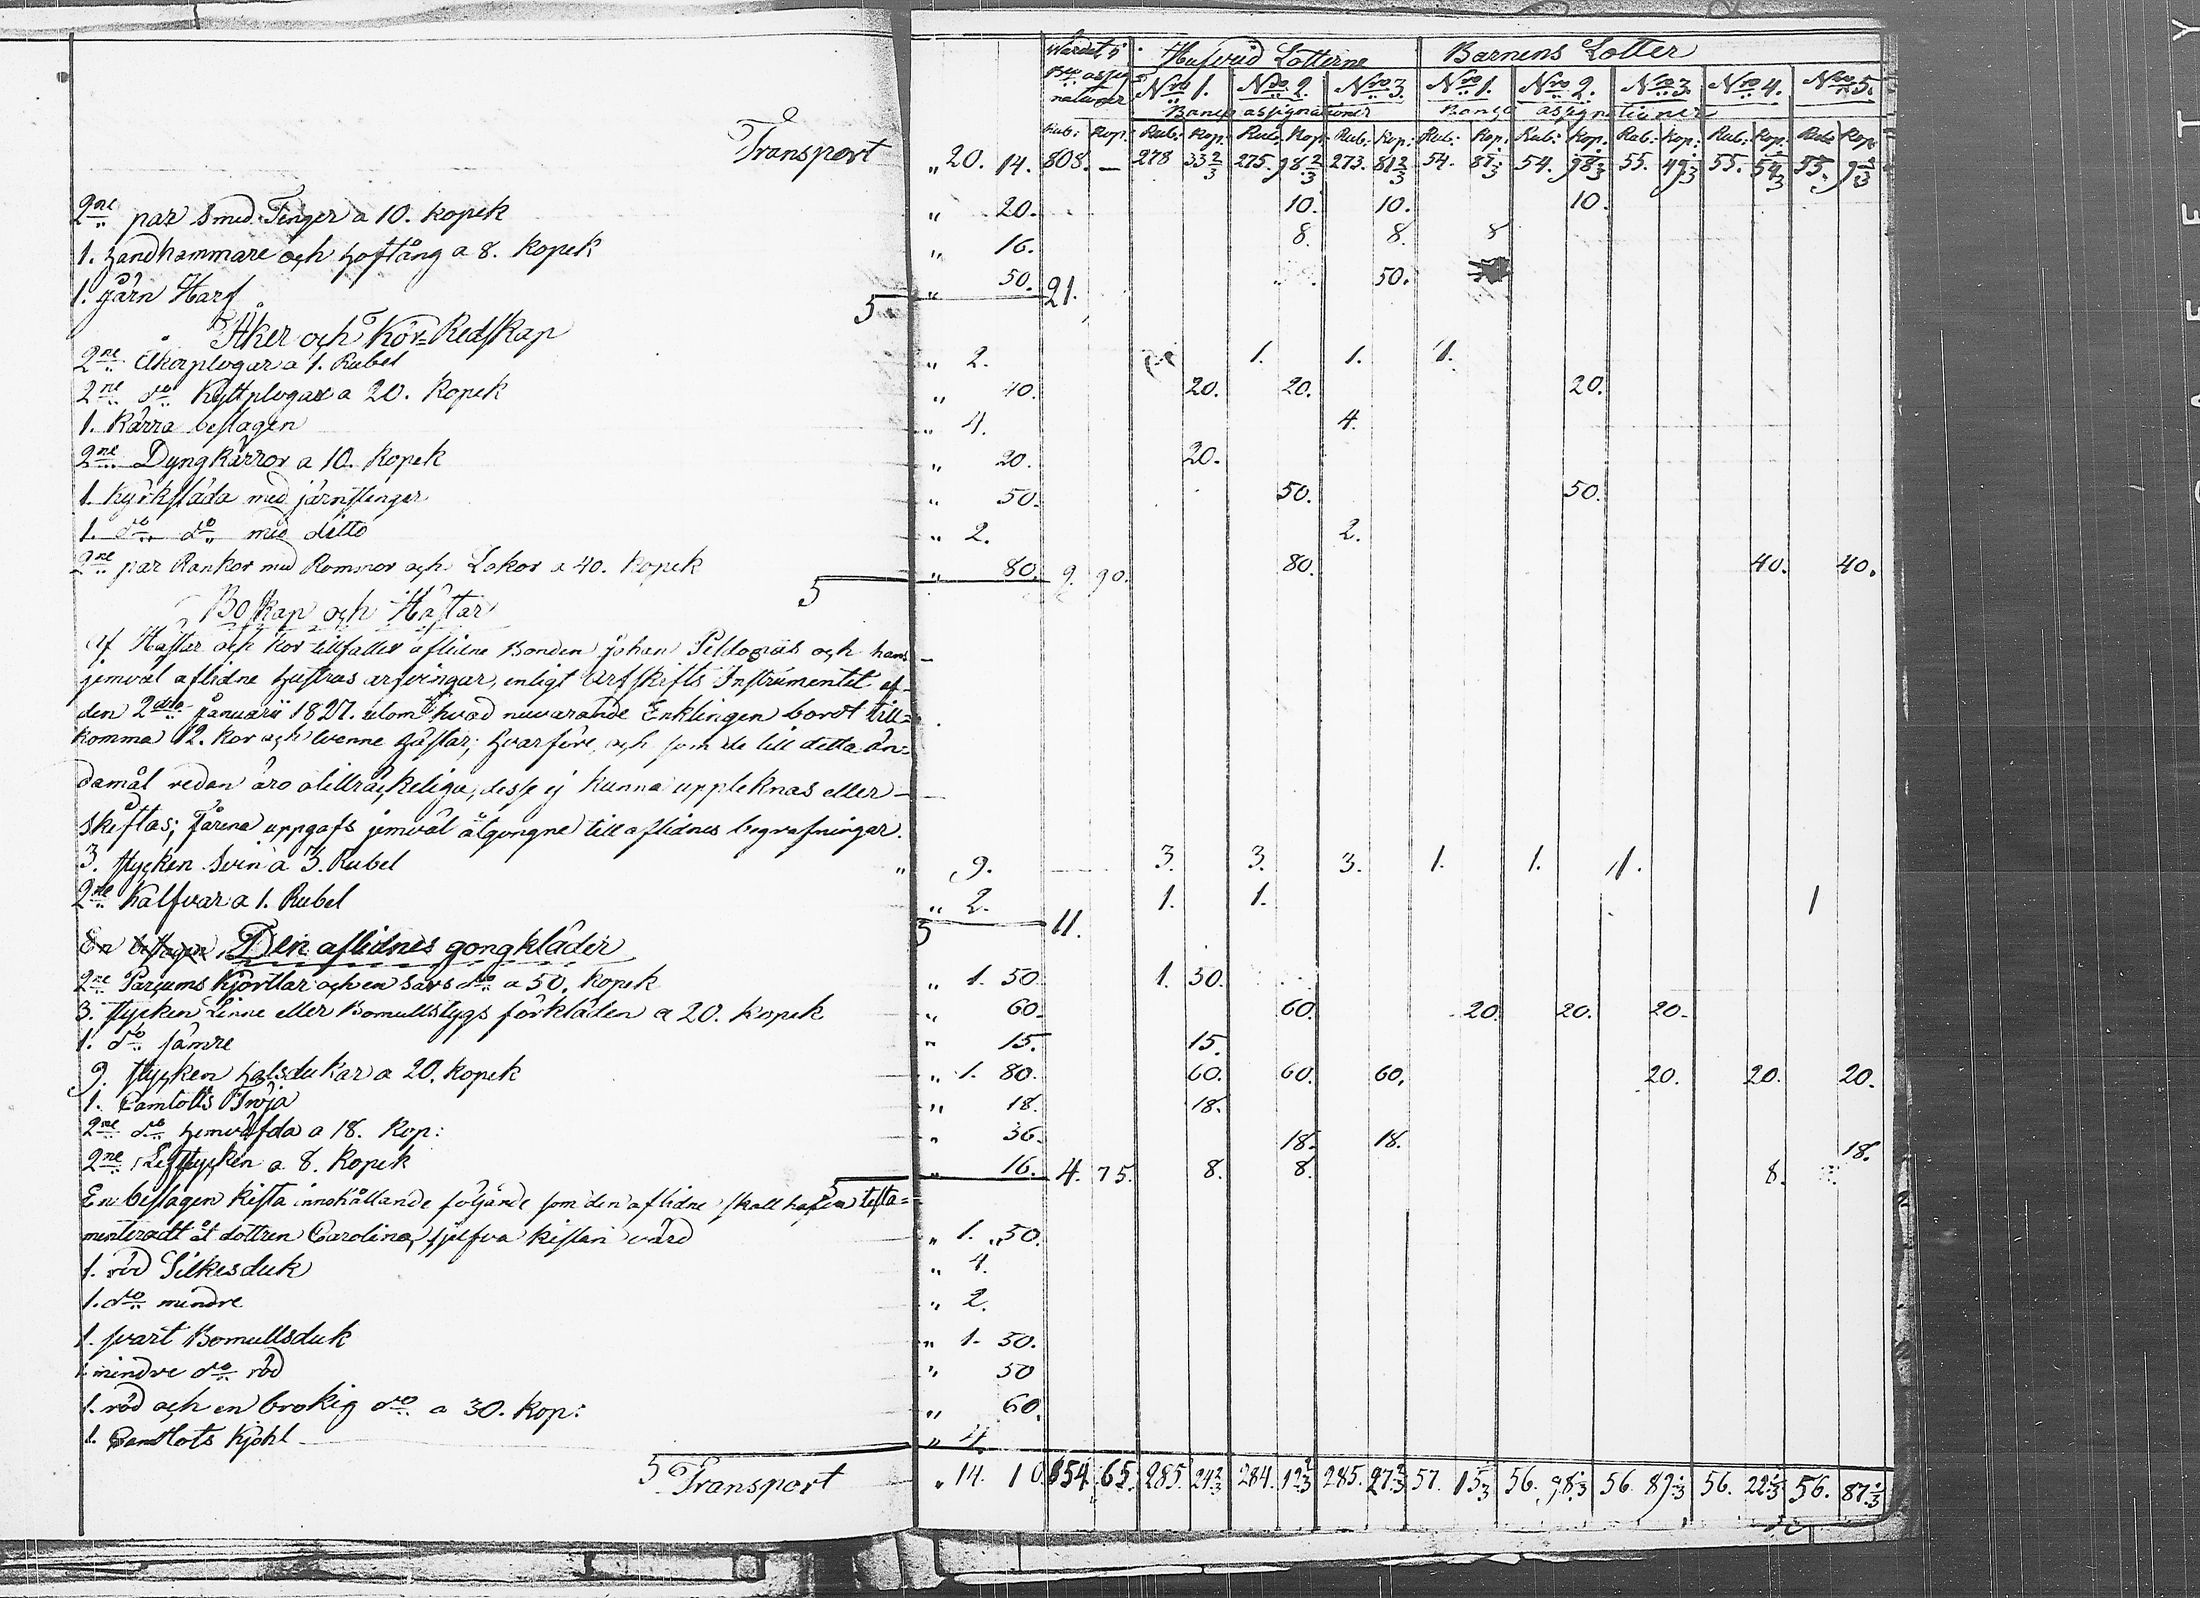 Wärdet i Hufvud Lotterne Barnens Lotter
Bco assig
nationer Nro 1. Nro 2. Nro 3. Nro 1. Nro 2. Nro 3. Nro 4. Nro 5.
Banco assignationer Banco assignationer
Rub: Kop: Rub: Kop: Rub: Kop: Rub: Kop: Rub: Kop: Rub: Kop: Rub: Kop: Rub: Kop: Rub: Kop:
Transport „ 20. 14. 808. — 278 33 2/3 275. 98 2/3 273. 81 2/3 54. 54. 98 1/3 55. 49 1/3 55. 55.
2ne par smed Tenger a 10. kopek „ 20. 10. 10. 10.
1. handhammare och hoftång a 8. kopek „ 16. 8. 8. 8
1. järn Harf 5 „ 50. 21. 50.
Åker och Kör=Redskap
2ne Åkerplogar a 1. Rubel „ 2. 1. 1. 1.
2ne do Kyttplogar a 20. kopek „ 40. 20. 20. 20.
1. Kärra beslagen „ 4. 4.
2ne Dyngkärror a 10. kopek „ 20. 20.
1. Kyrksläda med järnstenger „ 50. 50. 50.
1. do do med ditto „ 2. 2.
2ne par Rankor med Rommor och Lokor a 40. kopek 5 „ 80. 9. 90. 80. 40. 40.
Boskap och Hästar
Af Hästar och Kor tillfaller aflidne Bonden Johan och hans
jemväl aflidne hustrus arfvingar, enligt Arfskifts Instrumentet af
den 2dra Januarii 1827. utom hvad nuvarande Enklingen bordt till=
komma 12. Kor och tvenne hästar; hvarföre, och som de till detta än=
damål redan äro otillräckeliga, desse ej kunna uppteknas eller
skiftas; fårena uppgafs jemväl åtgongne till aflidnes begrafningar.
3. stycken Svin a 3. Rubel „ 9. 3. 3. 3. 1. 1. 1.
2ne Kalfvar a 1. Rubel „ 2. 11. 1. 1. 1
Den aflidnes gongkläder 5
2ne Parcums Kjortlar och en Sars do a 50. kopek „ 1. 50. 1. 50.
3. stycken Linne eller Bomullstygs förkläden a 20. kopek „ 60. 60. 20. 20. 20.
1. do sämre „ 15. 15.
9. stycken halsdukar a 20. kopek „ 1. 80. 60. 60. 60. 20. 20. 20.
1. Camlotts Tröja „ 18. 18.
2ne do hemväfda a 18. Kop: „ 36. 18. 18. 18.
2ne Lifstycken a 8. kopek 5 „ 16. 4. 75. 8. 8. 8.
En beslagen kista innehållande följande som den aflidne skall hafva testa=
menteradt åt dottren Carolina, sjelfva kistan värd „ 1. „ 50.
1. röd Silkesduk „ 4.
1. do mindre „ 2.
1. svart Bomullsduk „ 1. 50.
1 mindre do röd „ 50
1. röd och en brokig do a 30. kop: „ 60.
1. Camlots Kjohl „ 4.
5 Transport „ 14. 10 854. 65. 285. 24 2/3 284. 12 2/3 285. 27 2/3 57. 15 1/3 56. 98 1/3 56. 89 1/3 56. 22 1/3 56. 87 1/3